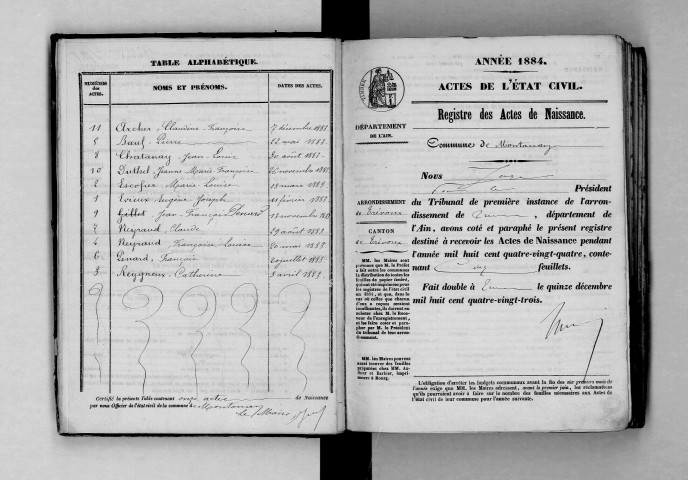 TABLE ALPHABÉTIQUE.
NUMÉROS des ACTES. NOMS ET PRÉNOMS. DATES DES ACTES.
11 Archer Claudine Françoise 7 décembre 1883
5 Pierre 22 mai 1883
8 Chatanay Jean Louis 30 août 1883
10 Duthel Jeanne Marie Françoise novembre 1883
2 Escofier Marie Louise 18 mars 1883
1 Eugène Joseph 11 février 1883
9 Gillot Jean François novembre 1883
7 Neyrand Claude 29 août 1883
4 Neyrand Françoise Louise 20 mai 1883
6 François 20 juillet 1883
3 Neygneux Catherine 3 avril 1883
Certifié la présente Table contenant onze actes de Naissance
par nous Officier de l'état civil de la commune de Montanay
Le Maire
ANNÉE 1884.
ACTES DE L'ÉTAT CIVIL.
Registre des Actes de Naissance.
DÉPARTEMENT
DE L'AIN.
ARRONDISSEMENT
de Trévoux
CANTON
de Trévoux
MM. les Maires sont
prévenus que M. le Préfet
a fait entre les communes
la distribution de toutes les
feuilles de papier timbré,
qui ont été imprimées pour
les registres de l'état civil
en 1884, et que, dans le
cas où celles que chacun
d'eux a reçues seraient
insuffisantes, ils doivent en
acheter chez M. le Rece-
veur de l'enregistrement,
et les faire coter et para-
pher par M. le Président
du tribunal de leur arron-
dissement.
MM. les Maires peuvent
aussi trouver des feuilles
préparées chez MM. Au-
thier et Barbier, impri-
meurs à Bourg.
Commune de Montanay
Nous
Président
du Tribunal de première instance de l'arron-
dissement de , département de
l'Ain, avons coté et paraphé le présent registre
destiné à recevoir les Actes de Naissance pendant
l'année mil huit cent quatre-vingt-quatre, conte-
nant Cinq feuillets.
Fait double à le quinze décembre
mil huit cent quatre-vingt-trois.
L'obligation d'arrêter les budgets communaux avant la fin des six premiers mois de
l'année exige que MM. les Maires adressent, avant le premier juin, les réclamations
qu'ils pourraient avoir à faire sur le nombre des feuilles nécessaires aux Actes de
l'état civil de leur commune pour l'année suivante.